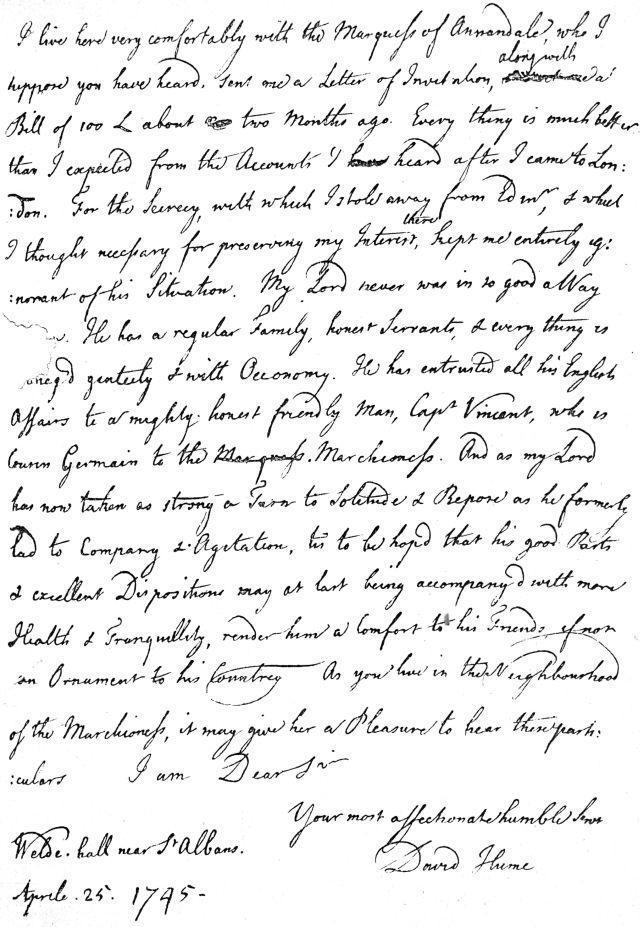 I live here very comfortably with the Marquess of Annandale, who I
along with
suppose you have heard, sent me a Letter of Invitation, a
Bill of 100 L about two Months ago. Every thing is much better
than I expected from the Accounts I heard after I came to Lon:
:don. For the Secrecy, with which I stole away from Edinr, & which
there
I thought necessary for preserving my Interest, kept me entirely ig:
:norant of his Situation. My Lord never was in so good a Way
He has a regular Family, honest Servants, & every thing is
genteely & with Oeconomy. He has entrusted all his English
Affairs to a mighty honest friendly Man, Capt Vincent, who is
Cousin Germain to the Marquess. Marchioness. And as my Lord
has now taken as strong a Turn to Solitude & Repose as he formerly
had to Company & Agitation, tis to be hop'd that his good Parts
& excellent Dispositions may at last being accompany'd with more
Health & Tranquillity, render him a Comfort to his Friends if not
an Ornament to his Countrey As you live in the Neighbourhood
of the Marchioness, it may give her a Pleasure to hear these parti:
:culars I am Dear Sir
Your most affectionate humble Servt
Welde-hall near St Albans. David Hume
Aprile. 25. 1745-